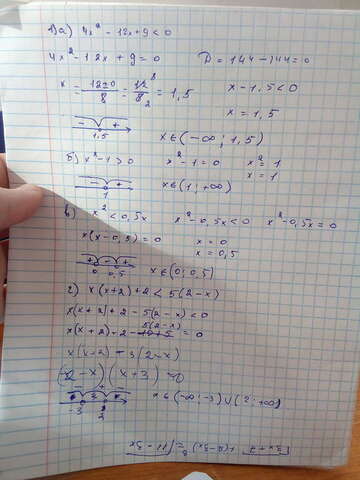 1) а) 4x² - 12x + 9 < 0
4x² - 12x + 9 = 0 D = 144 - 144 = 0
x = (12±0)/8 = 12/8 = 1,5 x - 1,5 < 0
x = 1,5
- + 1,5 x ∈ (-∞; 1,5)
б) x² - 1 > 0 x² - 1 = 0 x² = 1
x = 1
- + 1 x ∈ (1; +∞)
в) x² < 0,5x x² - 0,5x < 0 x² - 0,5x = 0
x(x - 0,5) = 0 x = 0
x = 0,5
+ - + 0 0,5 x ∈ (0; 0,5)
г) x(x+2) + 2 < 5(2-x)
x(x+2) + 2 - 5(2-x) < 0
5(2-x)
x(x+2) + 2 - = 0
(x+3) = 0
-3 2 x ∈ (-∞; -3) ∪ (2; +∞)